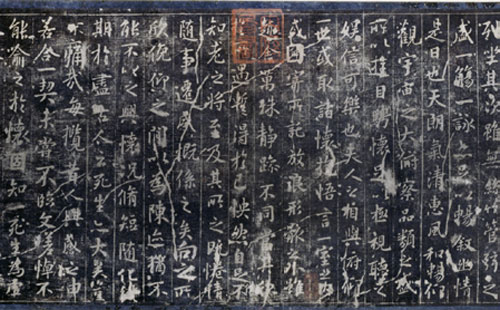 列坐其次雖無絲竹管弦之
盛一觴一詠亦足以暢敘幽情
是日也天朗氣清惠風和暢仰
觀宇宙之大俯察品類之盛
所以遊目騁懷足以極視聽之
娛信可樂也夫人之相與俯仰
一世或取諸懷抱悟言一室之內
或因寄所託放浪形骸之外雖
趣舍萬殊靜躁不同當其欣
於所遇蹔得於己快然自足不
知老之將至及其所之既惓情
隨事遷感慨係之矣向之所
欣俛仰之閒以為陳迹猶不
能不以之興懷況脩短隨化終
期於盡古人云死生亦大矣豈
不痛哉每攬昔人興感之由
若合一契未嘗不臨文嗟悼不
能喻之於懷固知一死生為虛